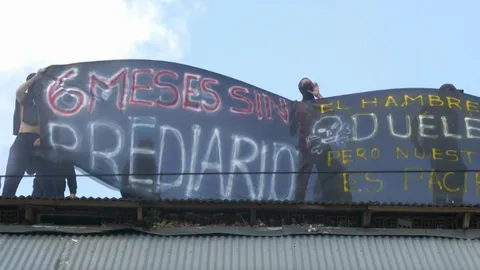 6 MESES SIN
PREDIARIO
EL HAMBRE
DUELE
PERO NUEST
ES PACI